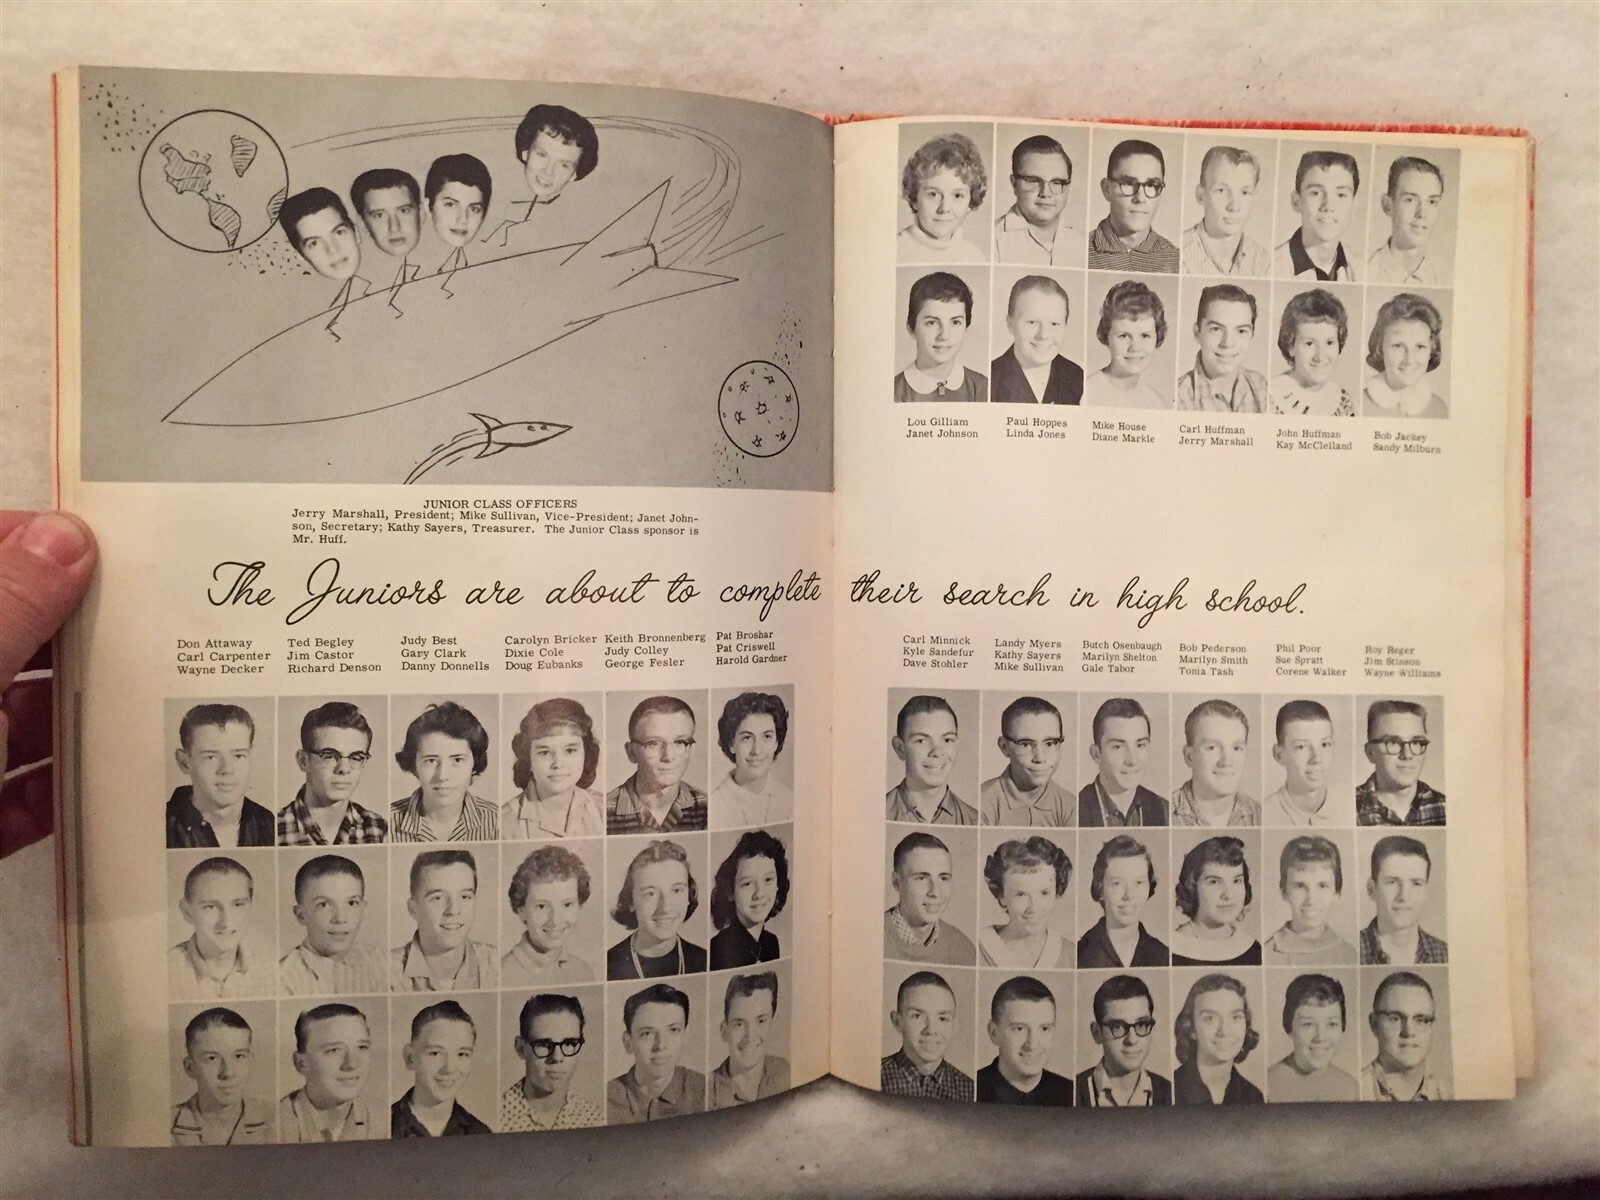 JUNIOR CLASS OFFICERS
Jerry Marshall, President; Mike Sullivan, Vice-President; Janet John-
son, Secretary; Kathy Sayers, Treasurer. The Junior Class sponsor is
Mr. Huff.
Lou Gilliam Paul Hoppes Mike House Carl Huffman John Huffman Bob Jackey
Janet Johnson Linda Jones Diane Markle Jerry Marshall Kay McClelland Sandy Milburn
The Juniors are about to complete their search in high school.
Don Attaway Ted Begley Judy Best Carolyn Bricker Keith Bronnenberg Pat Broshar
Carl Carpenter Jim Castor Gary Clark Dixie Cole Judy Colley Pat Criswell
Wayne Decker Richard Denson Danny Donnells Doug Eubanks George Fesler Harold Gardner
Carl Minnick Landy Myers Butch Osenbaugh Bob Pederson Phil Poor Roy Reger
Kyle Sandefur Kathy Sayers Marilyn Shelton Marilyn Smith Sue Spratt Jim Stinson
Dave Stohler Mike Sullivan Gale Tabor Tonia Tash Corene Walker Wayne Williams